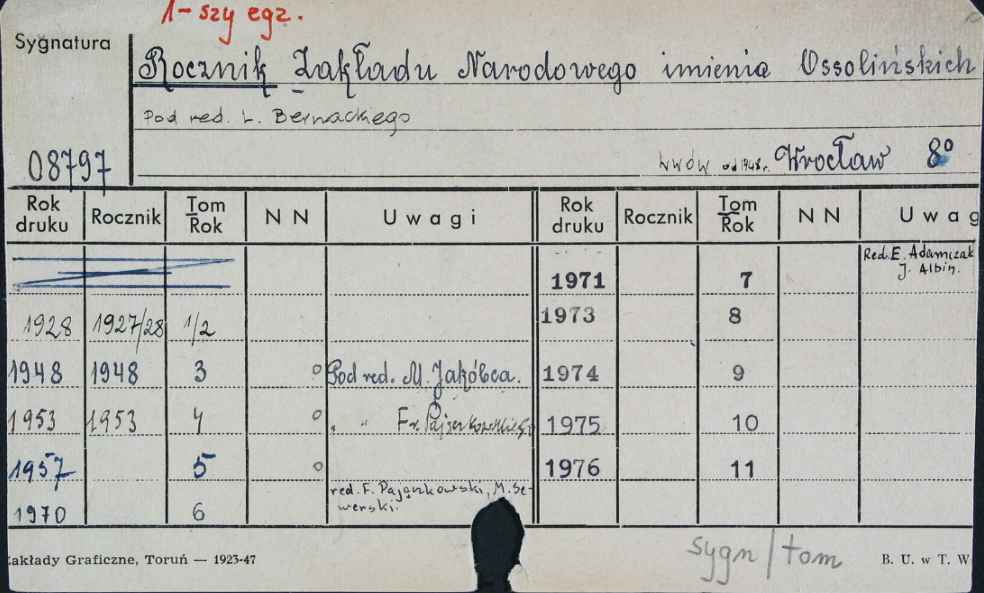 1-szy egz.
Sygnatura
Rocznik Zakładu Narodowego imienia Ossolińskich
Pod red. L. Bernackiego
08797
Lwów od 1948 r. Wrocław 8°
Rok druku Rocznik Tom Rok N N Uwagi Rok druku Rocznik Tom Rok N N Uwag
1971 7 Red. E. Adamczak
J. Albin.
1928 1927/28 1/2 1973 8
1948 1948 3 o Pod red. M. Jakóbca. 1974 9
1953 1953 4 o " " Fr. Pajączkowskiego 1975 10
1957 5 o 1976 11
1970 6 red. F. Pajączkowski, M. Se-
werski.
sygn/tom
akłady Graficzne, Toruń — 1923-47 B. U. w T. W